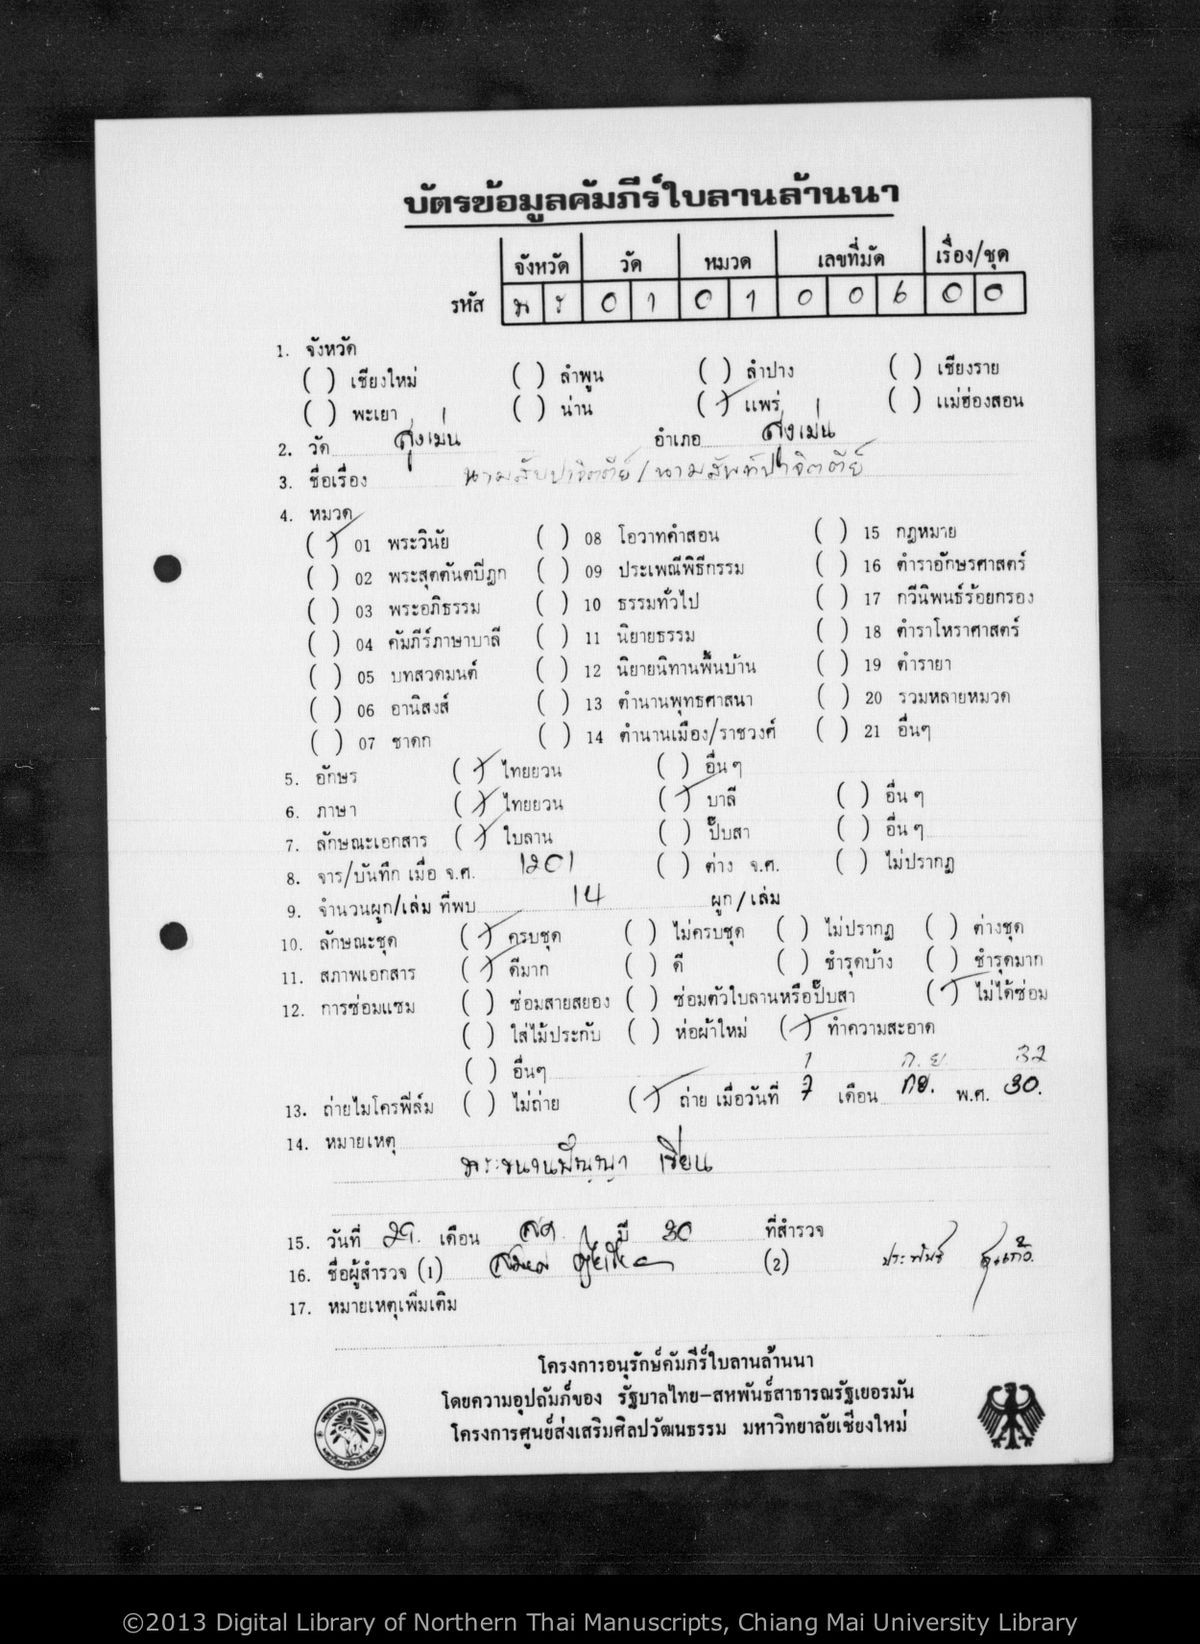 บัตรข้อมูลคัมภีร์ใบลานล้านนา
จังหวัด วัด หมวด เลขที่มัด เรื่อง/ชุด
รหัส พ ร 0 1 0 1 0 0 6 0 0
1. จังหวัด
( ) เชียงใหม่ ( ) ลำพูน ( ) ลำปาง ( ) เชียงราย
( ) พะเยา ( ) น่าน (/) แพร่ ( ) แม่ฮ่องสอน
2. วัด สูงเม่น อำเภอ สูงเม่น
3. ชื่อเรื่อง นามสับปาจิตตีย์ / นามสัพท์ปาจิตตีย์
4. หมวด
(/) 01 พระวินัย ( ) 08 โอวาทคำสอน ( ) 15 กฎหมาย
( ) 02 พระสุตตันตปิฎก ( ) 09 ประเพณีพิธีกรรม ( ) 16 ตำราอักษรศาสตร์
( ) 03 พระอภิธรรม ( ) 10 ธรรมทั่วไป ( ) 17 กวีนิพนธ์ร้อยกรอง
( ) 04 คัมภีร์ภาษาบาลี ( ) 11 นิยายธรรม ( ) 18 ตำราโหราศาสตร์
( ) 05 บทสวดมนต์ ( ) 12 นิยายนิทานพื้นบ้าน ( ) 19 ตำรายา
( ) 06 อานิสงส์ ( ) 13 ตำนานพุทธศาสนา ( ) 20 รวมหลายหมวด
( ) 07 ชาดก ( ) 14 ตำนานเมือง/ราชวงศ์ ( ) 21 อื่นๆ
5. อักษร (/) ไทยยวน ( ) อื่น ๆ
6. ภาษา (/) ไทยยวน (/) บาลี ( ) อื่น ๆ
7. ลักษณะเอกสาร (/) ใบลาน ( ) ปั๊บสา ( ) อื่น ๆ
8. จาร/บันทึก เมื่อ จ.ศ. 1201 ( ) ต่าง จ.ศ. ( ) ไม่ปรากฏ
9. จำนวนผูก/เล่ม ที่พบ 14 ผูก/เล่ม
10. ลักษณะชุด (/) ครบชุด ( ) ไม่ครบชุด ( ) ไม่ปรากฏ ( ) ต่างชุด
11. สภาพเอกสาร (/) ดีมาก ( ) ดี ( ) ชำรุดบ้าง ( ) ชำรุดมาก
12. การซ่อมแซม ( ) ซ่อมสายสยอง ( ) ซ่อมตัวใบลานหรือปั๊บสา (/) ไม่ได้ซ่อม
( ) ใส่ไม้ประกับ ( ) ห่อผ้าใหม่ (/) ทำความสะอาด
( ) อื่นๆ 1 ก.ย. 32
13. ถ่ายไมโครฟิล์ม ( ) ไม่ถ่าย (/) ถ่าย เมื่อวันที่ 7 เดือน กย. พ.ศ. 30.
14. หมายเหตุ
เขียน
15. วันที่ 29. เดือน สค. ปี 30 ที่สำรวจ
16. ชื่อผู้สำรวจ (1) (2) ประพันธ์
17. หมายเหตุเพิ่มเติม
โครงการอนุรักษ์คัมภีร์ใบลานล้านนา
โดยความอุปถัมภ์ของ รัฐบาลไทย-สหพันธ์สาธารณรัฐเยอรมัน
โครงการศูนย์ส่งเสริมศิลปวัฒนธรรม มหาวิทยาลัยเชียงใหม่
©2013 Digital Library of Northern Thai Manuscripts, Chiang Mai University Library